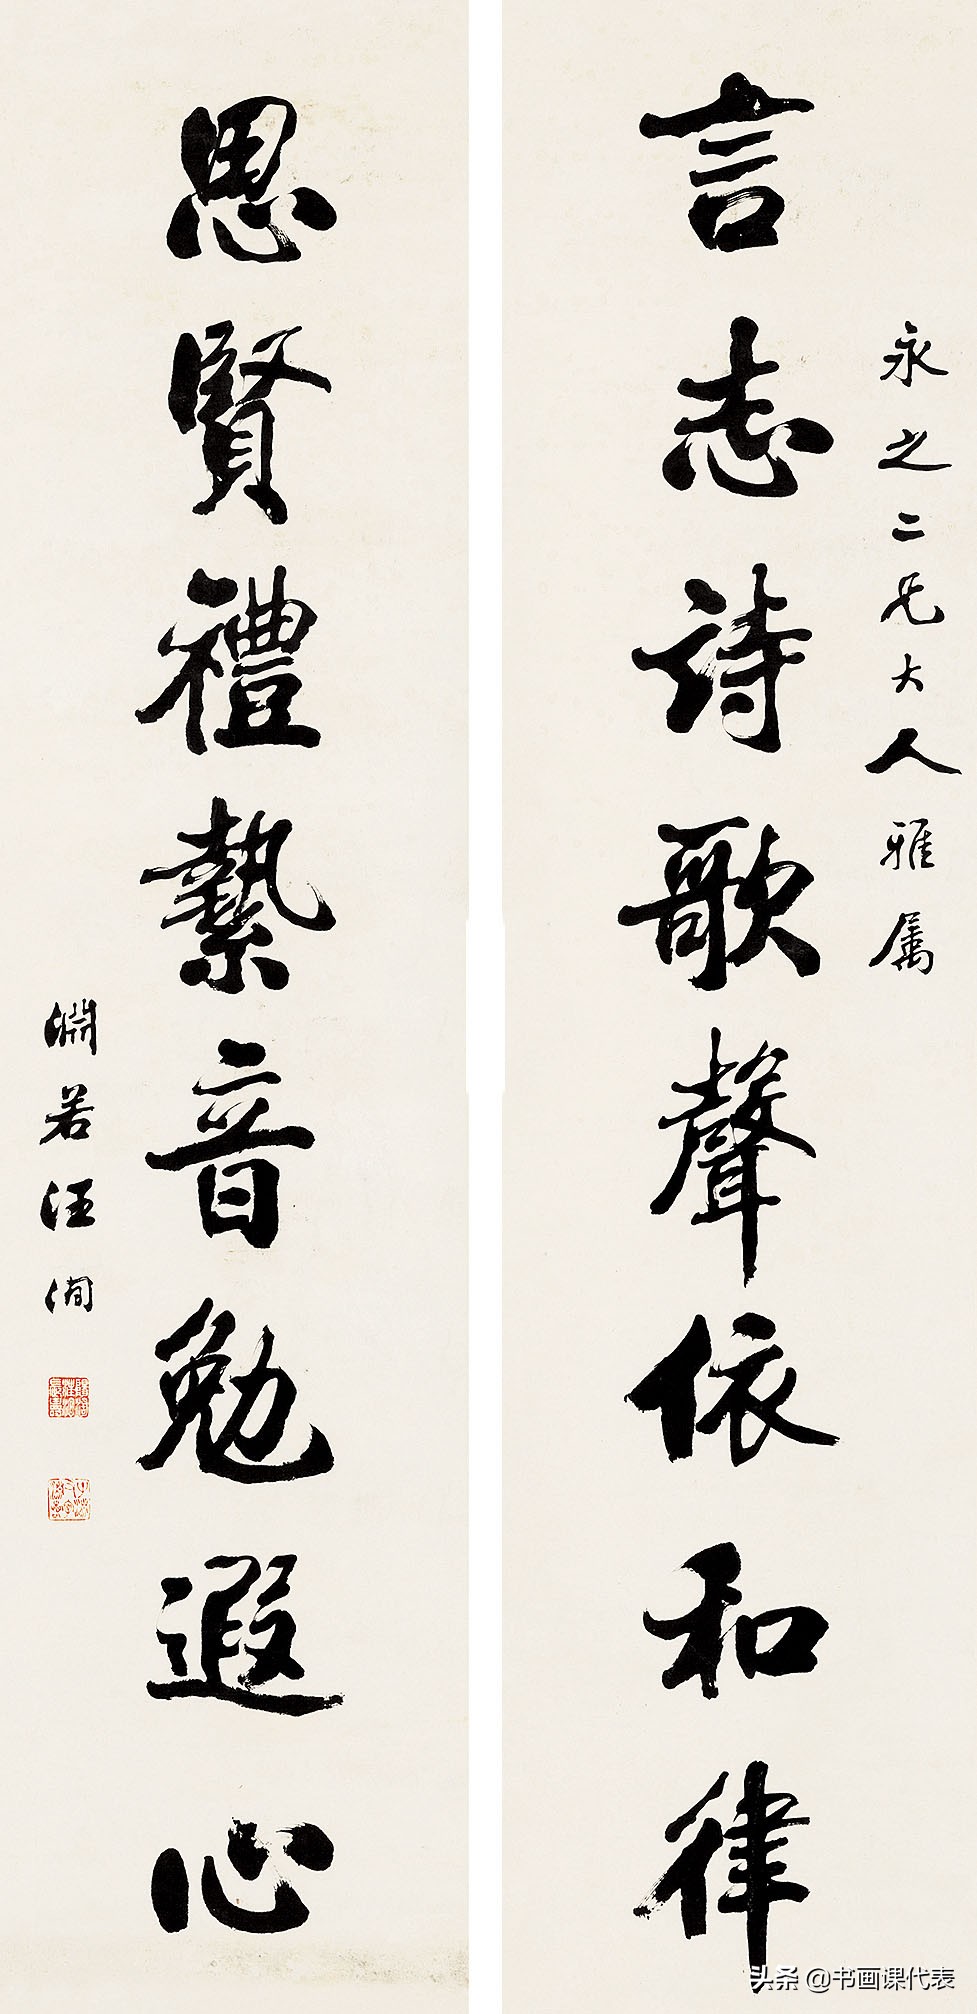 永之二兄大人雅属
言志詩歌聲依和律
思賢禮埶音勉遐心
淵若汪洵
头条 @书画课代表